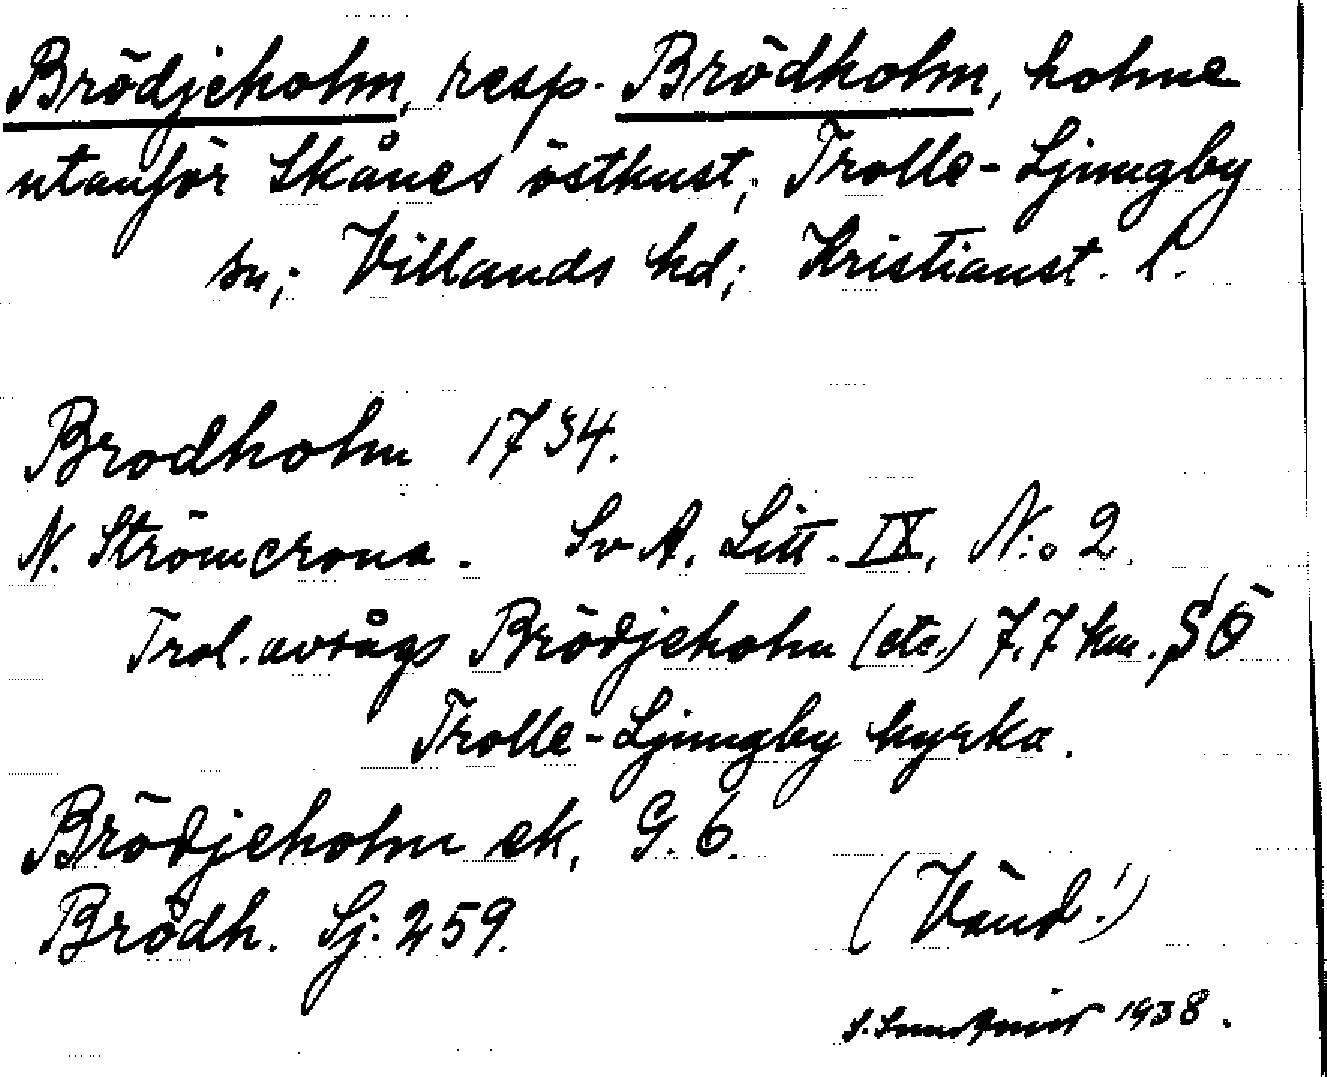 Brödjeholm, resp. Brödholm, holme
utanför Skånes östkust; Trolle-Ljungby
sn; Villands hd; Kristianst. l.
Brodholm 1734.
N. Strömcrona. Sv A. Litt. IX, N:o 2.
Trol. avsågs Brödjeholm (etc.) 7,7 km. SÖ
Trolle-Ljungby kyrka.
Brödjeholm ek, G. 6.
Brödh. Sj. 259.
(Vänd!)
1938.